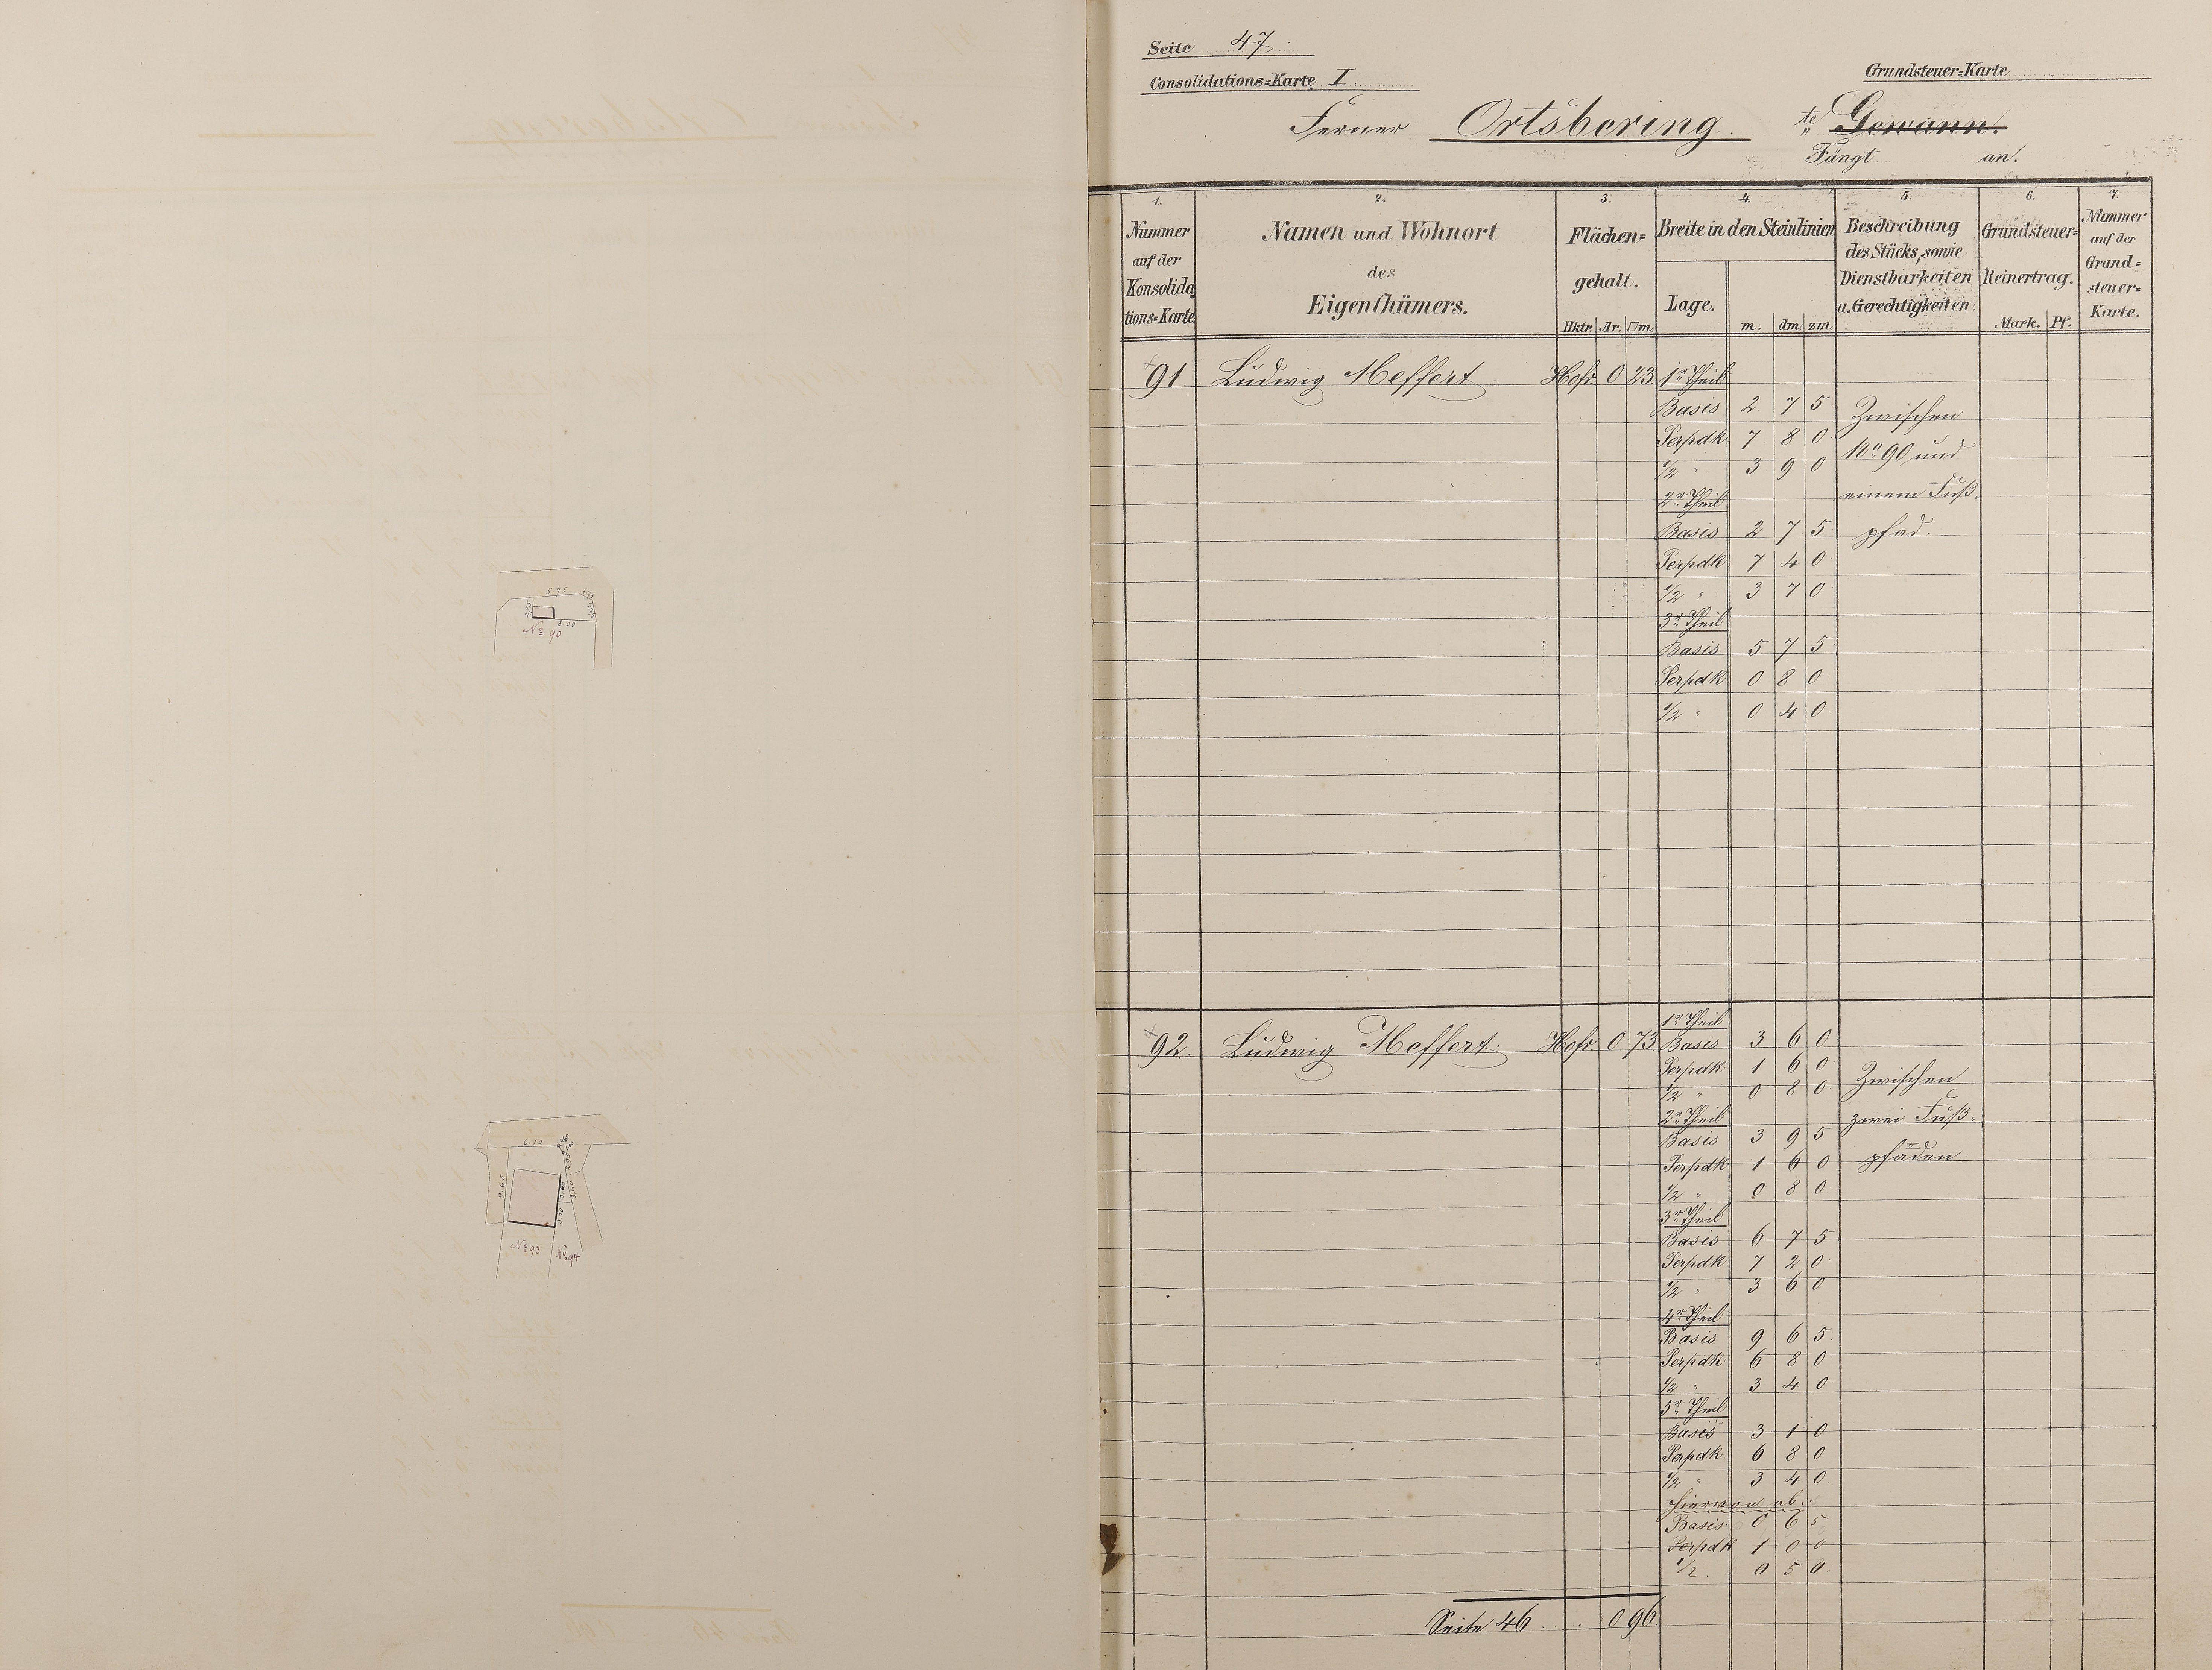 Seite 47.
Consolidations=Karte I.
Grundsteuer=Karte
Ferner Ortsbering te Gewann.
Fängt an.
1. 2. 3. 4. 5. 6. 7.
Nummer auf der Konsolida tions=Karte
Namen und Wohnort des Eigenthümers.
Flächen= gehalt.
Hktr. Ar. □m.
Breite in den Steinlinien
Lage. m. dm. zm.
Beschreibung des Stücks, sowie Dienstbarkeiten u. Gerechtigkeiten
Grundsteuer= Reinertrag.
Mark. Pf.
Nummer auf der Grund= steuer= Karte.
91 Ludwig Meffert Hofr. 0 23. 1r Theil
Basis 2 7 5 Zwischen
Perpdk 7 8 0
1/2 " 3 9 0 No 90 und
2r Theil einem Fuß
Basis 2 7 5 pfad.
Perpdk 7 4 0
1/2 " 3 7 0
3r Theil
Basis 5 7 5
Perpdk 0 8 0
1/2 " 0 4 0
5.75
3.00
No 90
92. Ludwig Meffert. Hofr 0 73 1r Theil
Basis 3 6 0
Perpdk 1 6 0 Zwischen
1/2 " 0 8 0
2r Theil zwei Fuß=
Basis 3 9 5 pfäden
Perpdk 1 6 0
1/2 " 0 8 0
3r Theil
Basis 6 7 5
Perpdk 7 2 0
1/2 " 3 6 0
4r Theil
Basis 9 6 5
Perpdk 6 8 0
1/2 " 3 4 0
5r Theil
Basis 3 1 0
Perpdk 6 8 0
1/2 " 3 4 0
Hiervon ab.
Basis 0 6 5
Perpdk 1 0 0
1/2. 0 5 0
6.10
9.65
No 93 No 94
Seite 46 . . 0 96.